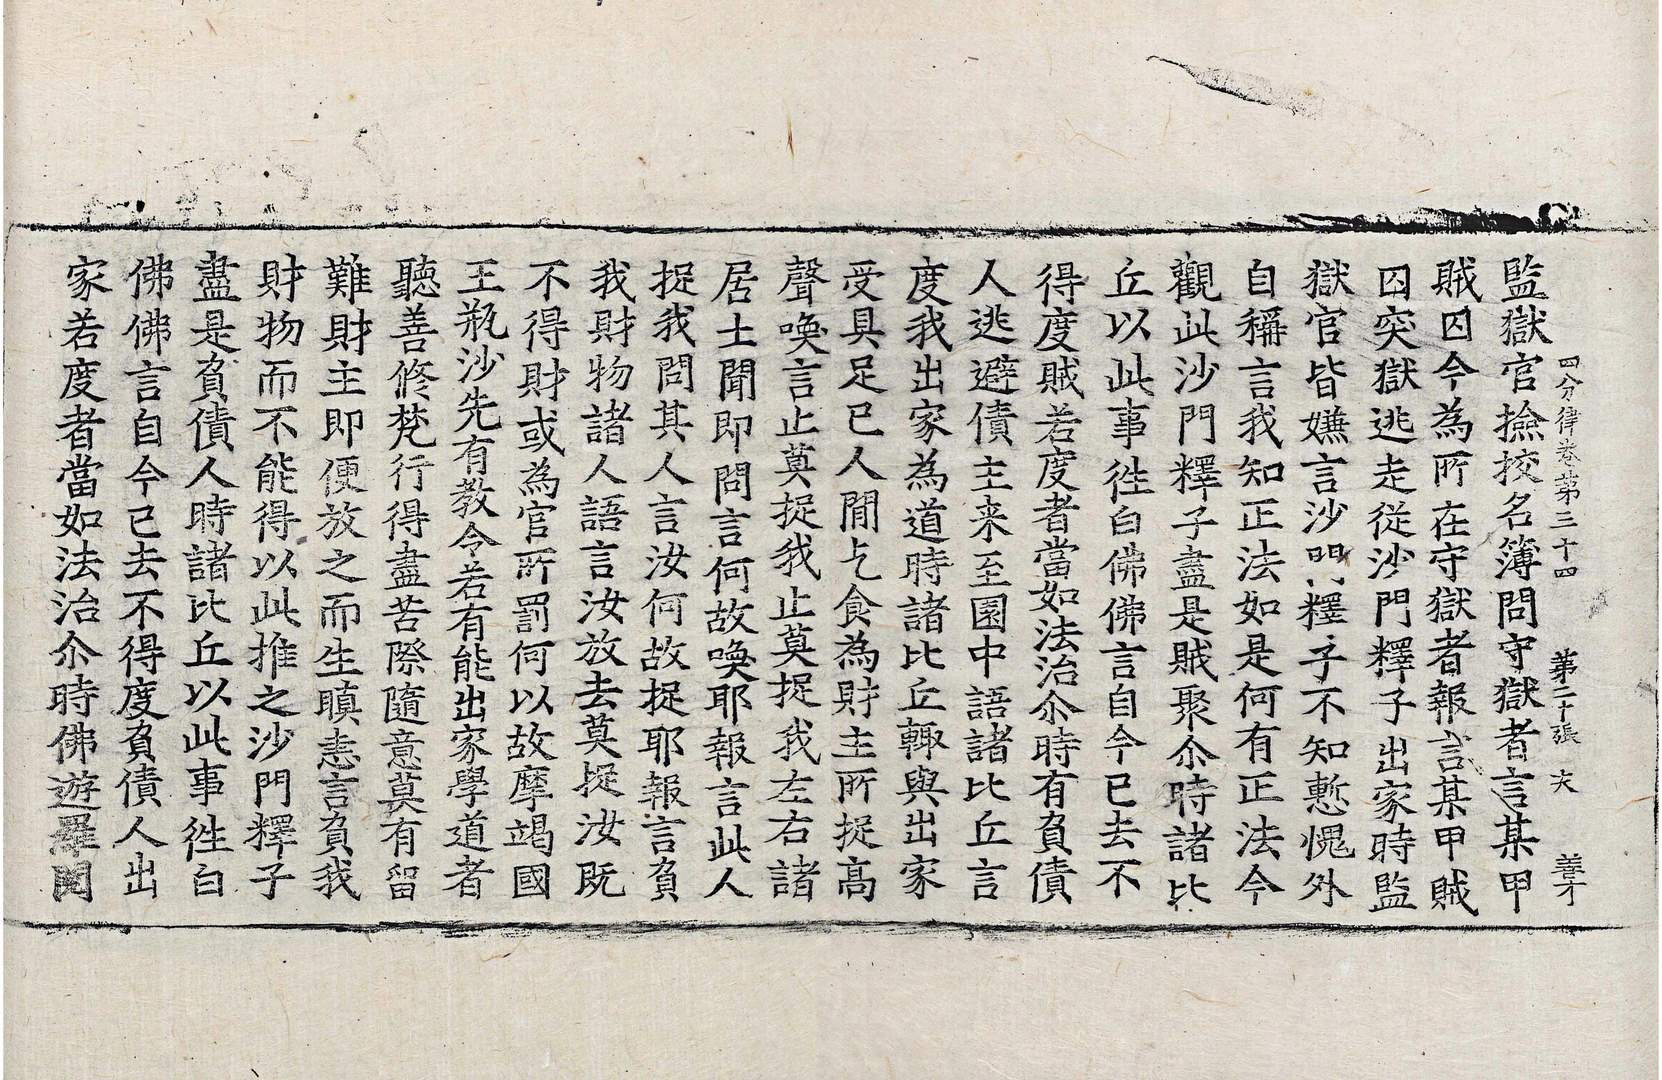 四分律卷第三十四 第二十張 夫 善才
監獄官撿挍名簿問守獄者言某甲
賊囚今為所在守獄者報言某甲賊
囚突獄逃走從沙門釋子出家時監
獄官皆嫌言沙門釋子不知慙愧外
自稱言我知正法如是何有正法今
觀此沙門釋子盡是賊聚尒時諸比
丘以此事徃白佛佛言自今已去不
得度賊若度者當如法治尒時有負債
人逃避債主来至園中語諸比丘言
度我出家為道時諸比丘輙與出家
受具足已人間乞食為財主所捉高
聲喚言止莫捉我止莫捉我左右諸
居士聞即問言何故喚耶報言此人
捉我問其人言汝何故捉耶報言負
我財物諸人語言汝放去莫捉汝既
不得財或為官所罰何以故摩竭國
王瓶沙先有教令若有能出家學道者
聽善修梵行得盡苦際隨意莫有留
難財主即便放之而生瞋恚言負我
財物而不能得以此推之沙門釋子
盡是負債人時諸比丘以此事徃白
佛佛言自今已去不得度負債人出
家若度者當如法治尒時佛遊羅閱